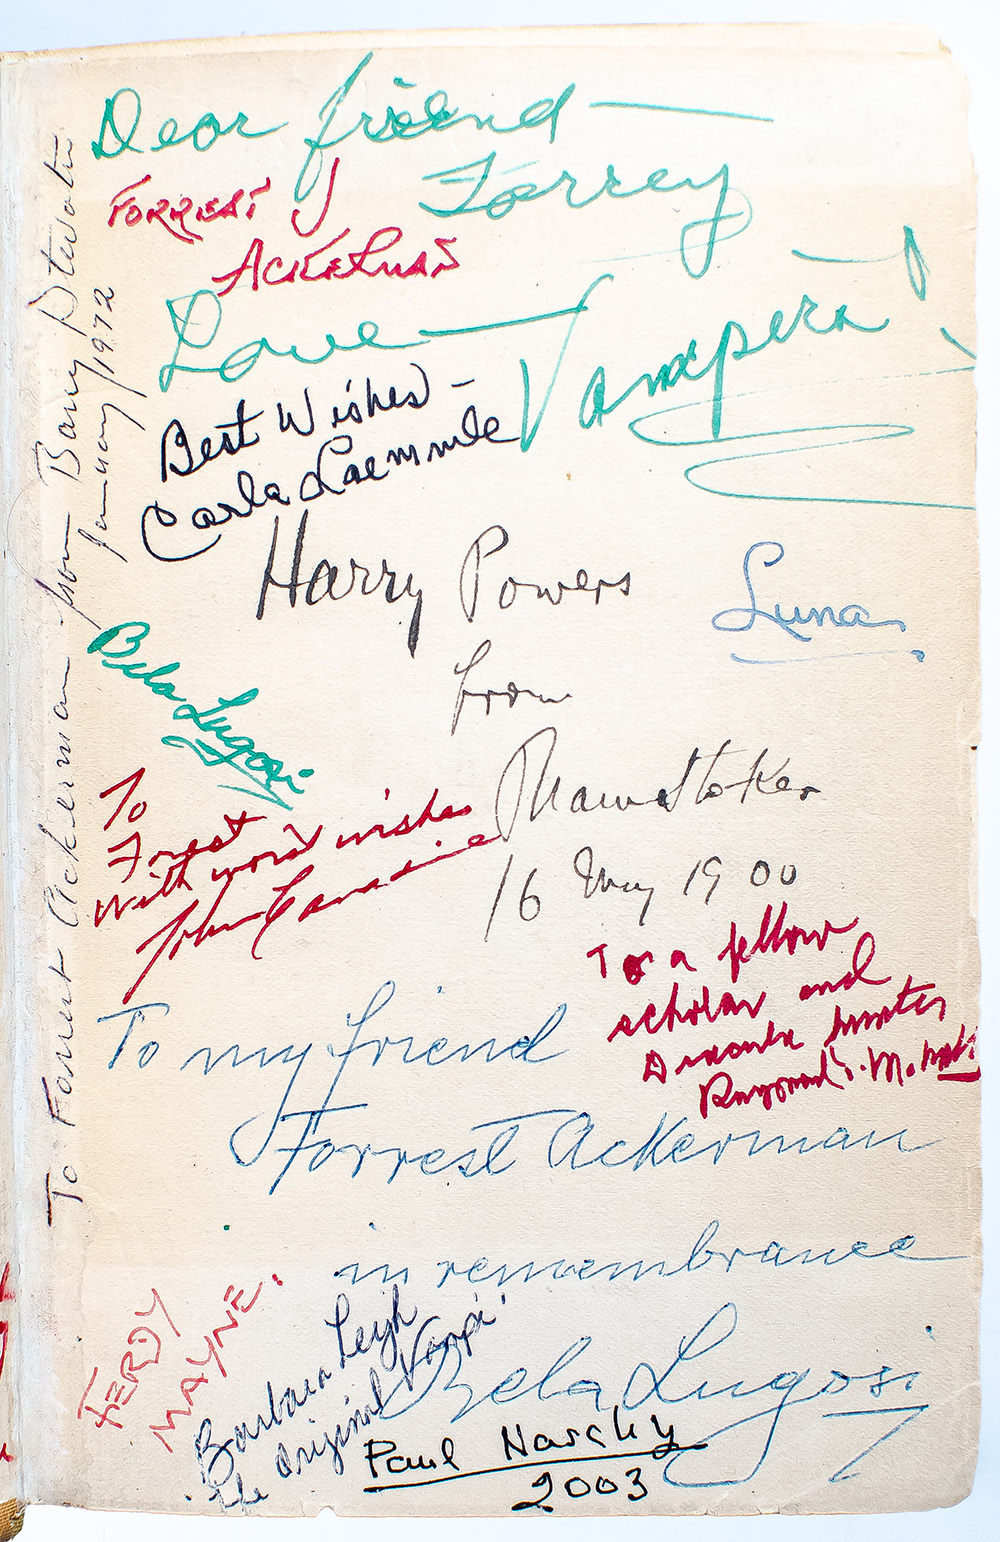 Dear friend —
Forrey
FORREST J
ACKERMAN
Love — Vampira!
Best Wishes –
Carla Laemmle
Harry Powers
from
Bram Stoker
16 May 1900
Luna
Bela Lugosi
To
Forest
With worst wishes
John Carradine
To a fellow
scholar and
Dracula hunter
Raymond T. McNally
To my friend
Forrest Ackerman
in remembrance
Bela Lugosi
FERDY
MAYNE.
Barbara Leigh
the original Vampi!
Paul Naschy
2003
To Forrest Ackerman from Barry Atwater
January 1972